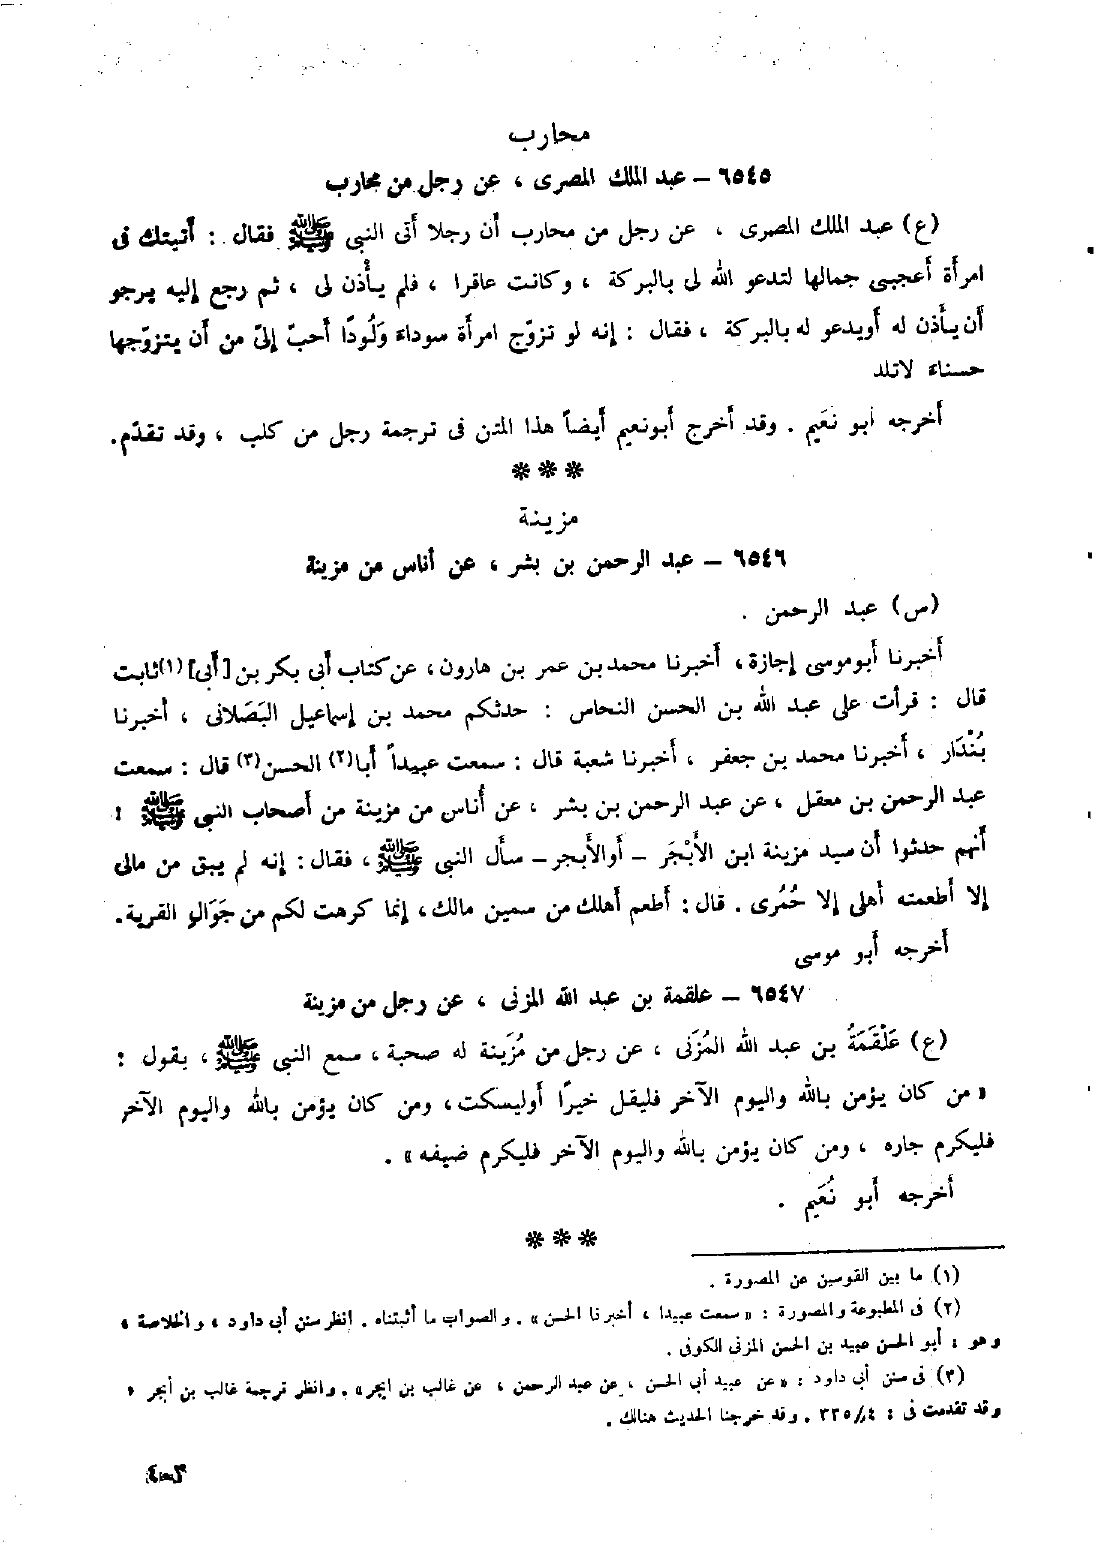 محارب
٦٥٤٥ – عبد الملك المصرى ، عن رجل من محارب
(ع) عبد الملك المصرى ، عن رجل من محارب أن رجلا أتى النبى ﷺ فقال : أتيتك فى
امرأة أعجبنى جمالها لتدعو الله لى بالبركة ، وكانت عاقرا ، فلم يأْذن لى ، ثم رجع إليه يرجو
أن يأذن له أويدعو له بالبركة ، فقال : إنه لو تزوّج امرأة سوداء وَلُودًا أحبّ إلىّ من أن يتزوّجها
حسناء لاتلد
أخرجه أبو نعَيم . وقد أخرج أبونعيم أيضاً هذا المتن فى ترجمة رجل من كلب ، وقد تقدّم.
*** 
مزينة
٦٥٤٦ – عبد الرحمن بن بشر ، عن أناس من مزينة
(س) عبد الرحمن .
أخبرنا أبوموسى إجازة، أخبرنا محمد بن عمر بن هارون، عن كتاب أبى بكر بن [أبى] (١) ثابت
قال : قرأت على عبد الله بن الحسن النحاس : حدثكم محمد بن إسماعيل البَصَلانى ، أخبرنا
بُنْدَار ، أخبرنا محمد بن جعفر ، أخبرنا شعبة قال : سمعت عبيداً أبا(٢) الحسن(٣) قال : سمعت
عبد الرحمن بن معقل ، عن عبد الرحمن بن بشر ، عن أُناس من مزينة من أصحاب النبى ﷺ :
أنهم حدثوا أن سيد مزينة ابن الأَبْجَر – أوالأبجر – سأل النبى ﷺ ، فقال : إنه لم يبق من مالى
إلا أطعمته أهلى إلا حُمُرى . قال : أطعم أهلك من سمين مالك، إنما كرهت لكم من جَوَالِّ القرية.
أخرجه أبو موسى
٦٥٤٧ – علقمة بن عبد الله المزنى ، عن رجل من مزينة
(ع) عَلْقَمَةُ بن عبد الله المُزَنى ، عن رجل من مُزَينة له صحبة ، سمع النبى ﷺ ، يقول :
« من كان يؤمن بالله واليوم الآخر فليقل خيرًا أوليسكت، ومن كان يؤمن بالله واليوم الآخر
فليكرم جاره ، ومن كان يؤمن بالله واليوم الآخر فليكرم ضيفه » .
أخرجه أبو نُعَيم .
***
(١) ما بين القوسين عن المصورة .
(٢) فى المطبوعة والمصورة : « سمعت عبيدا ، أخبرنا الحسن » . والصواب ما أثبتناه . انظر سنن أبى داود ، والخلاصة ،
وهو : أبو الحسن عبيد بن الحسن المزنى الكوفى .
(٣) فى سنن أبى داود : « عن عبيد أبى الحسن ، عن عبد الرحمن ، عن غالب بن أبجر » . وانظر ترجمة غالب بن أبجر ،
وقد تقدمت فى : ٤/ ٣٣٥ . وقد خرجنا الحديث هنالك .